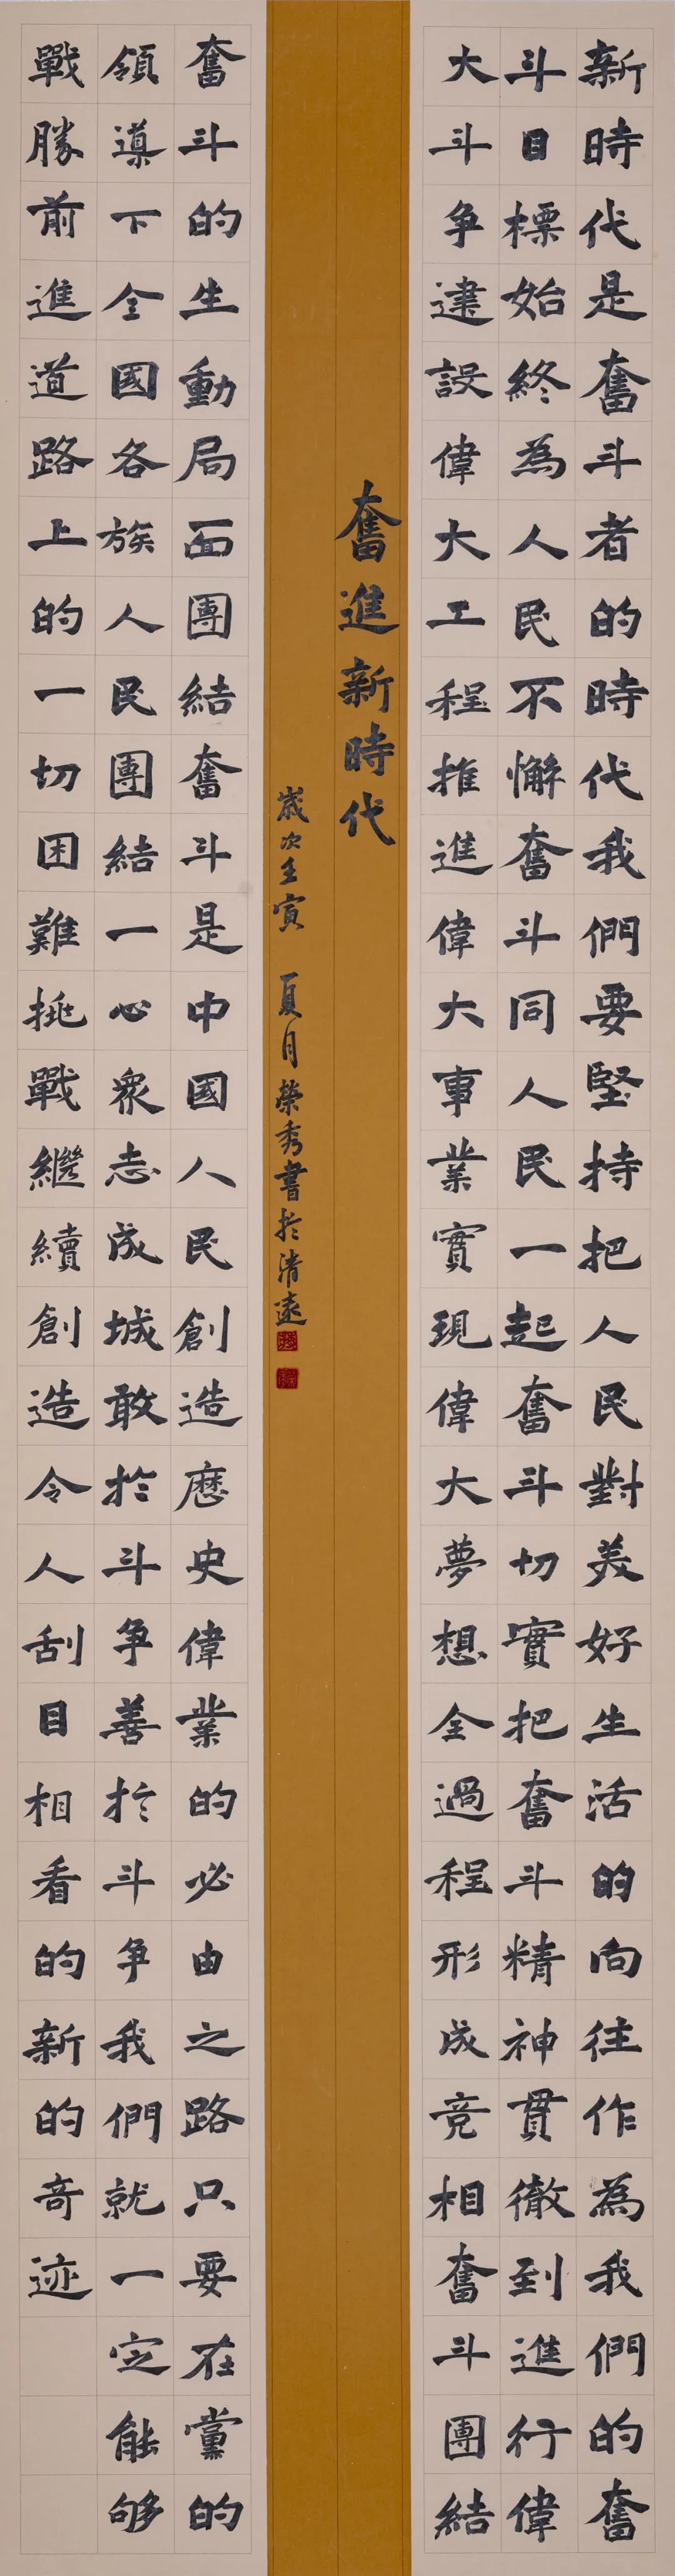 新時代是奮斗者的時代我們要堅持把人民對美好生活的向往作為我們的奮
斗目標始終為人民不懈奮斗同人民一起奮斗切實把奮斗精神貫徹到進行偉
大斗爭建設偉大工程推進偉大事業實現偉大夢想全過程形成竞相奮斗團結
奮進新時代
歲次壬寅 夏月榮秀書於清遠
奮斗的生動局面團結奮斗是中國人民創造歷史偉業的必由之路只要在黨的
領導下全國各族人民團結一心衆志成城敢於斗爭善於斗爭我們就一定能够
戰勝前進道路上的一切困難挑戰繼續創造令人刮目相看的新的奇迹